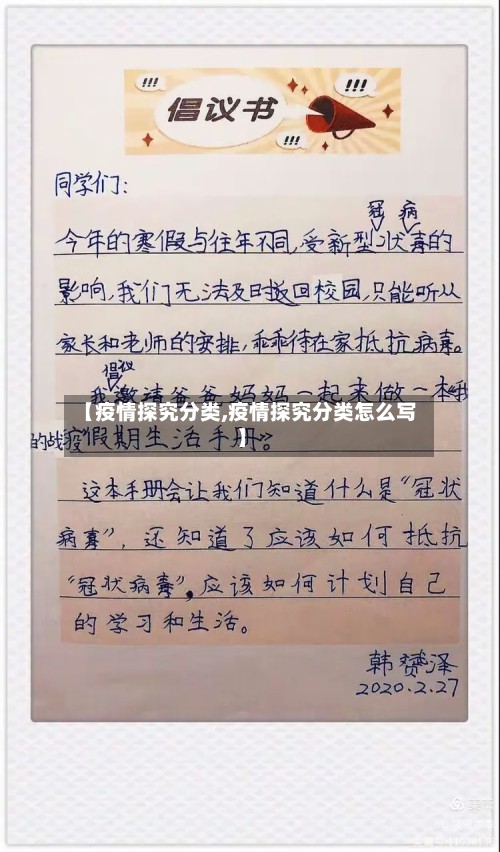 !!!
!!!
倡议书
!!!
同学们:
冠 病
今年的寒假与往年不同,受新型状毒的
影响,我们无法及时返回校园,只能听从
家长和老师的安排,乖乖待在家抵抗病毒。
倡议
我邀请爸爸妈妈一起来做一本《我
【疫情探究分类,疫情探究分类怎么写
】
的战疫假期生活手册》。
这本手册会让我们知道什么是“冠状
病毒”,还知道了应该如何抵抗
“冠状病毒”,应该如何计划自己
的学习和生活。
韩赟泽
2020.2.27